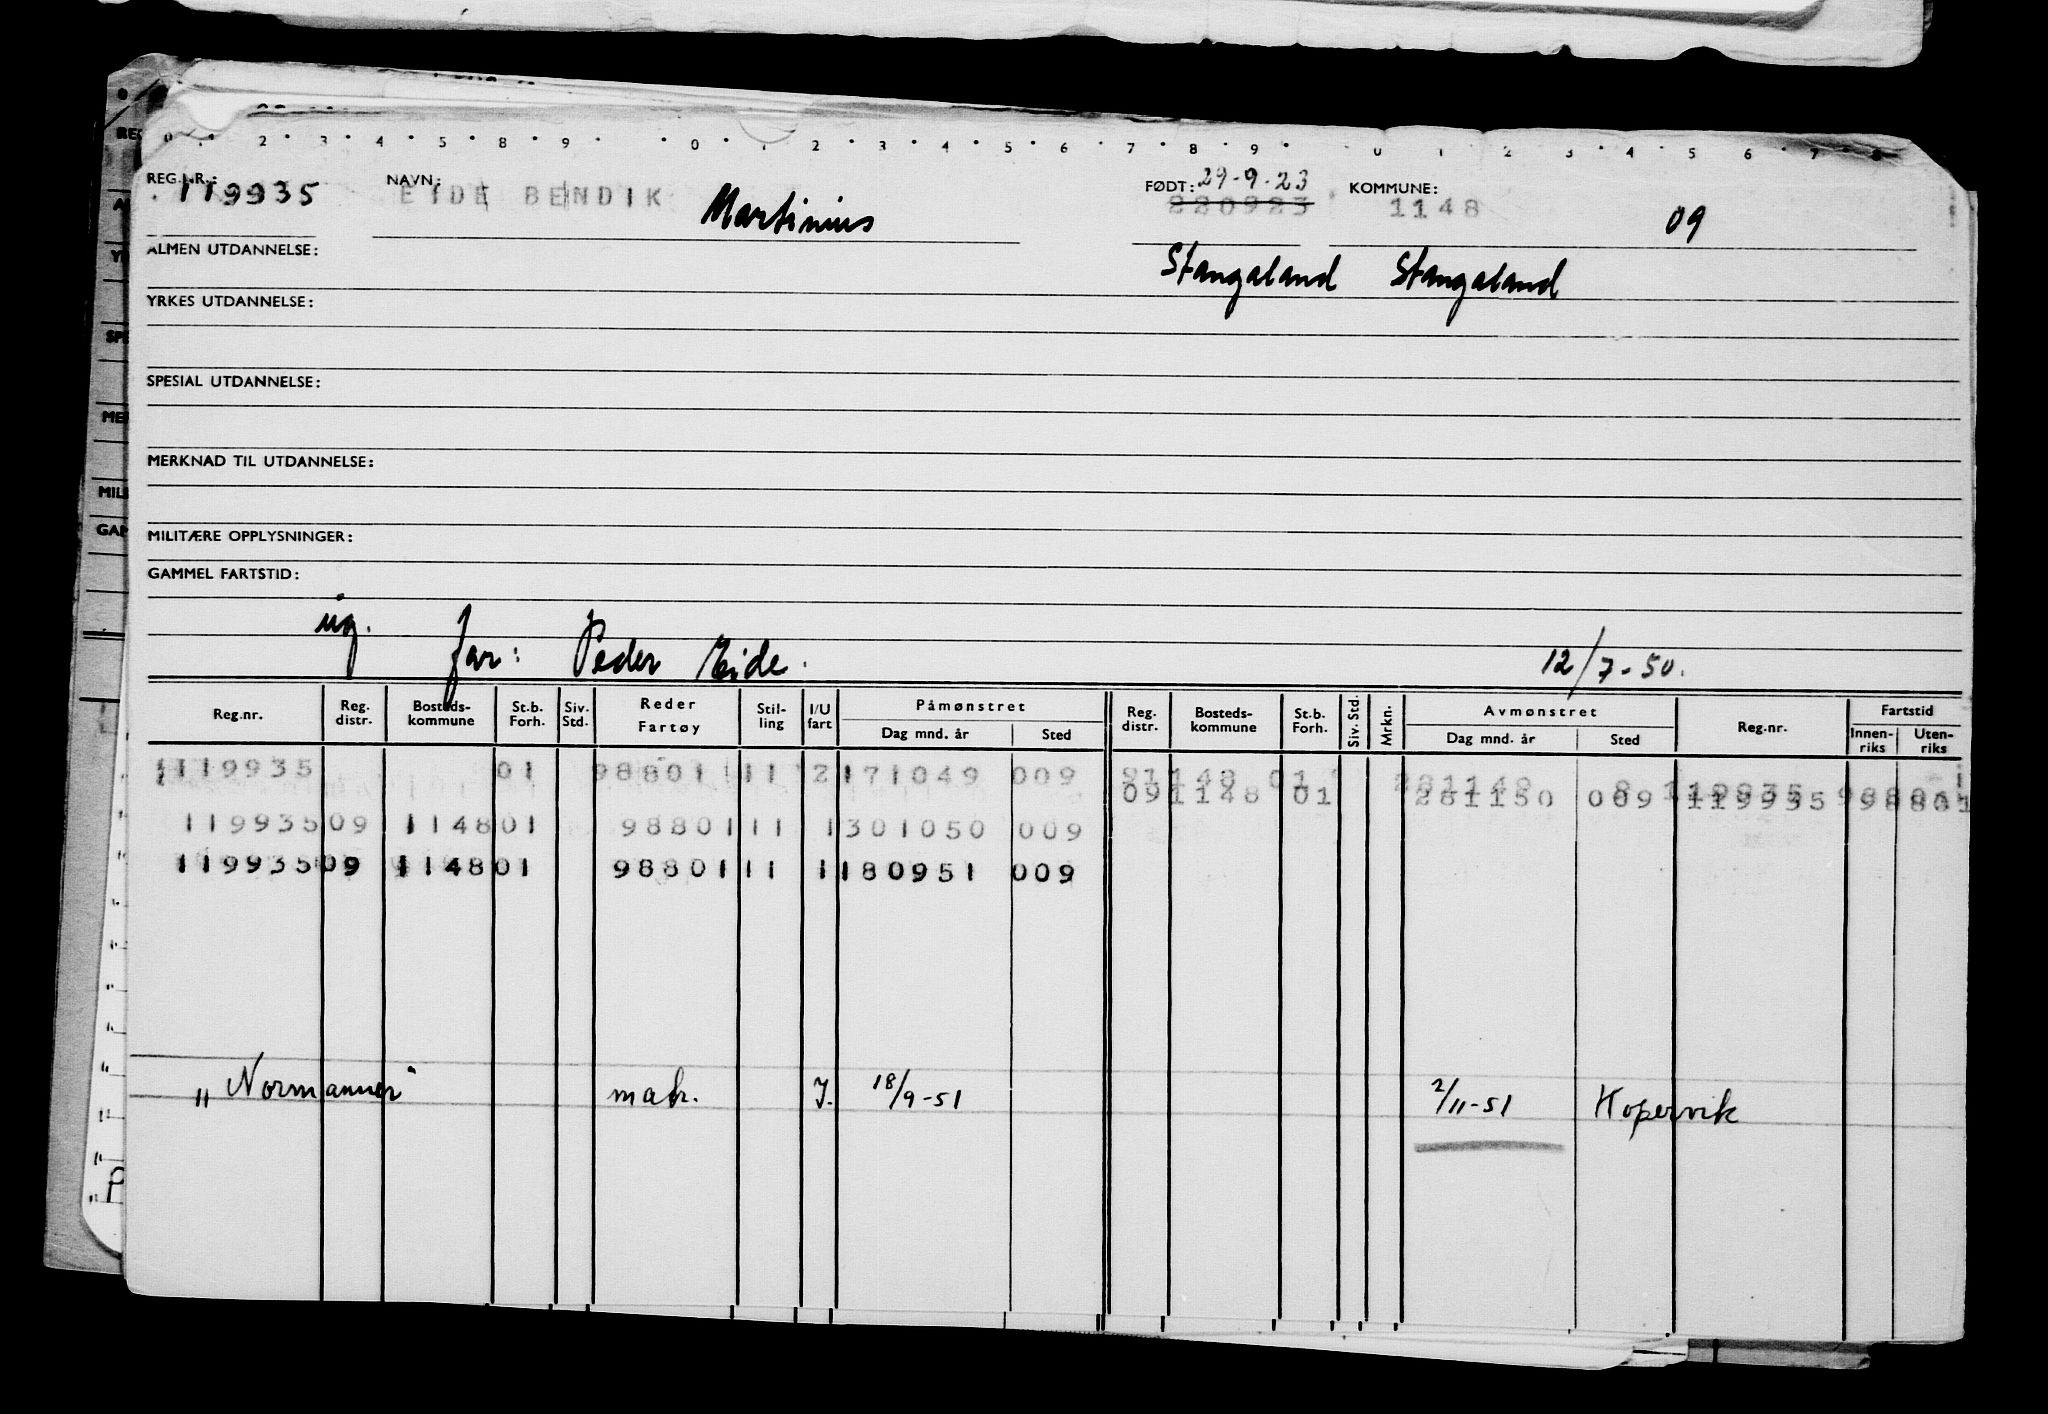 0 . . 2 . 3 . 4 . 5 . 8 . 9 . . 0 . 1 . 2 . 3 . 4 . 5 . 6 . 7 . 8 . 9 . . 0 . 1 . 2 . 3 . 4 . 5 . 6 . 7 . 8
REG.NR.: 119935 NAVN: EIDE BENDIK Martinius FØDT: 29-9.23 220923 KOMMUNE: 1148 09
ALMEN UTDANNELSE: Stangaland Stangaland
YRKES UTDANNELSE:
SPESIAL UTDANNELSE:
MERKNAD TIL UTDANNELSE:
MILITÆRE OPPLYSNINGER:
GAMMEL FARTSTID:
ug. far: Peder Eide. 12/7-50.
Reg.nr. Reg. distr. Bosteds-kommune St.b. Forh. Siv. Std. Reder Fartøy Stil-ling I/U fart Påmønstret Dag mnd. år Sted Reg. distr. Bosteds-kommune St.b. Forh. Siv. Std. Mrkn. Avmønstret Dag mnd. år Sted Reg.nr. Fartstid Innen-riks Uten-riks
119935 01 98801 11 2 171049 009
09 1148 01 281150 009 119935 98801
119935 09 1148 01 98801 11 1 301050 009
119935 09 1148 01 98801 11 1 180951 009
"Normanner" matr. I. 18/9-51 2/11-51 Kopervik